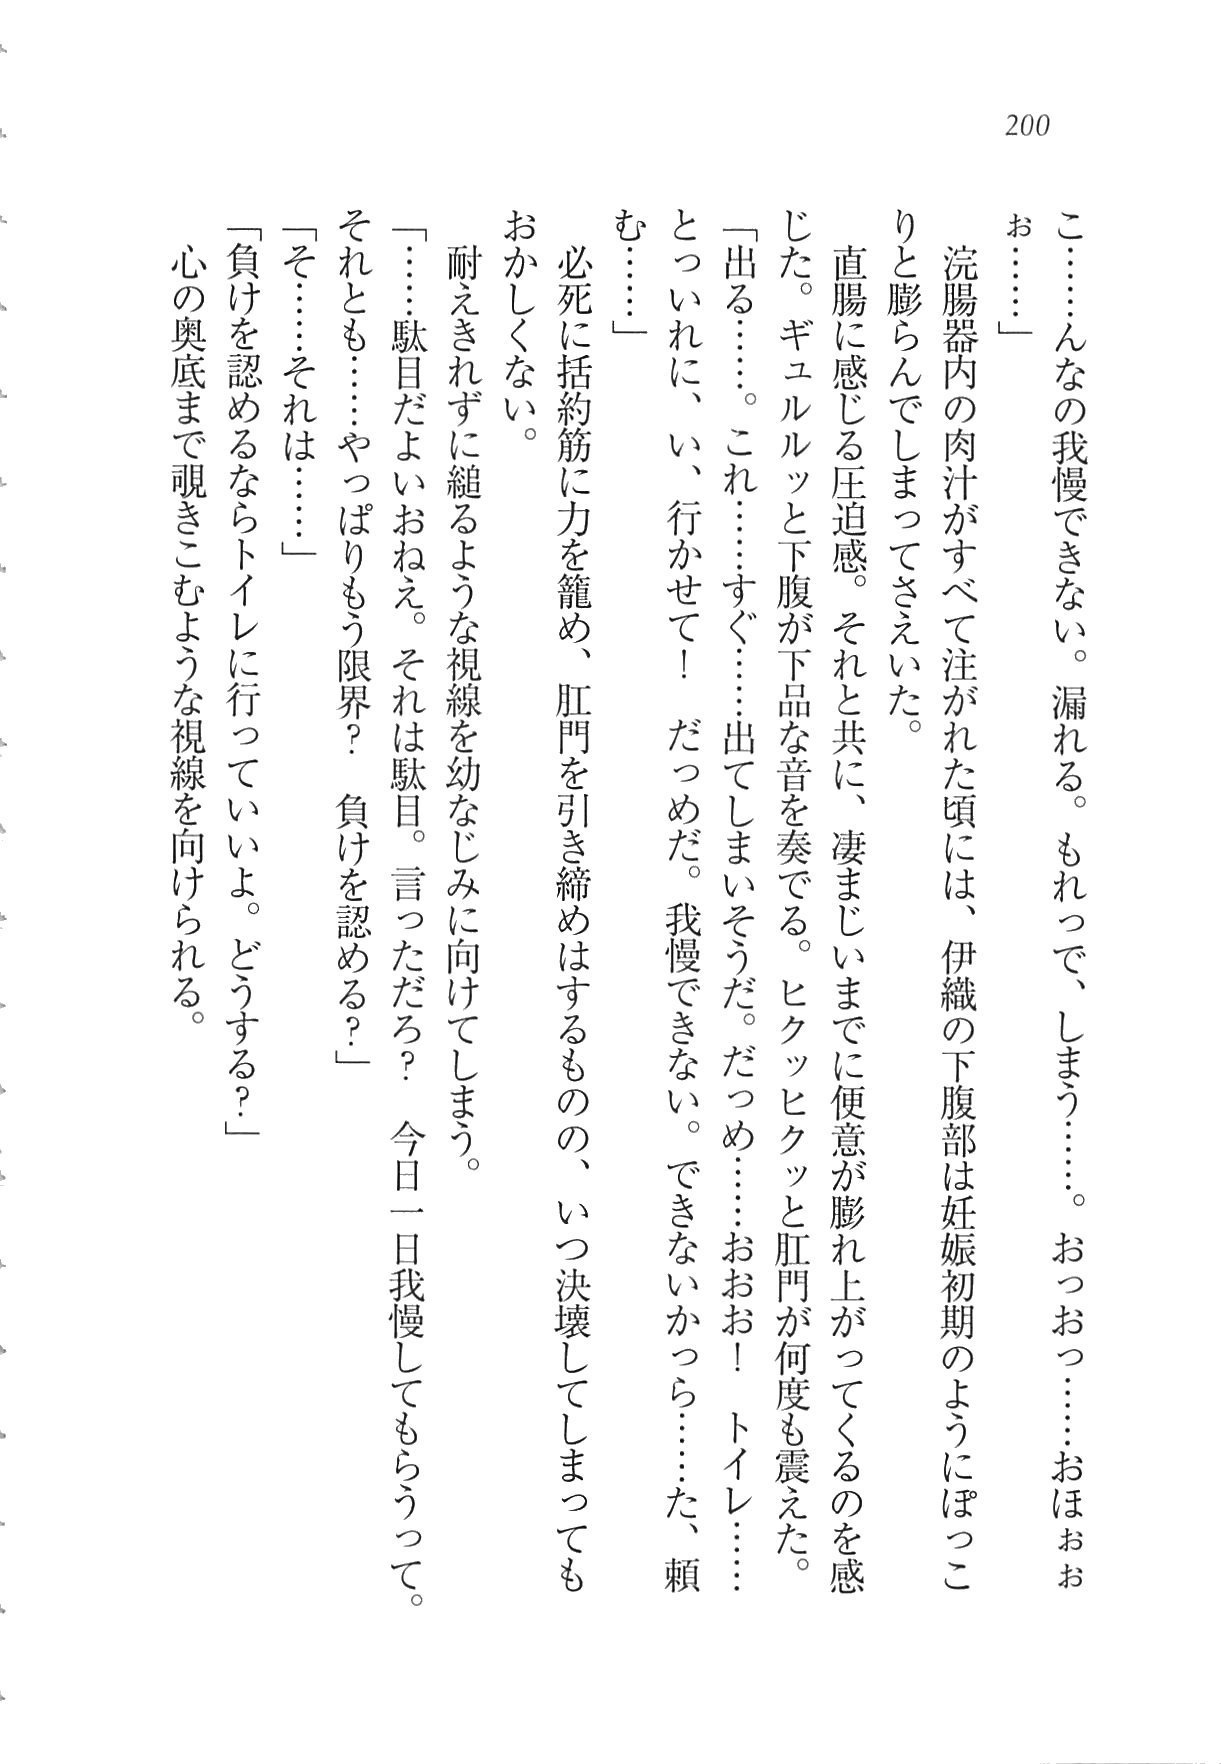 200
こ……んなの我慢できない。漏れる。もれっで、しまう……。おっおっ……おほぉぉ
ぉ……」
　浣腸器内の肉汁がすべて注がれた頃には、伊織の下腹部は妊娠初期のようにぽっこ
りと膨らんでしまってさえいた。
　直腸に感じる圧迫感。それと共に、凄まじいまでに便意が膨れ上がってくるのを感
じた。ギュルルッと下腹が下品な音を奏でる。ヒクッヒクッと肛門が何度も震えた。
「出る……。これ……すぐ……出てしまいそうだ。だっめ……おおお！　トイレ……
とっいれに、い、行かせて！　だっめだ。我慢できない。できないかっら……た、頼
む……」
　必死に括約筋に力を籠め、肛門を引き締めはするものの、いつ決壊してしまっても
おかしくない。
　耐えきれずに縋るような視線を幼なじみに向けてしまう。
「……駄目だよいおねえ。それは駄目。言っただろ？　今日一日我慢してもらうって。
それとも……やっぱりもう限界？　負けを認める？」
「そ……それは……」
「負けを認めるならトイレに行っていいよ。どうする？」
　心の奥底まで覗きこむような視線を向けられる。